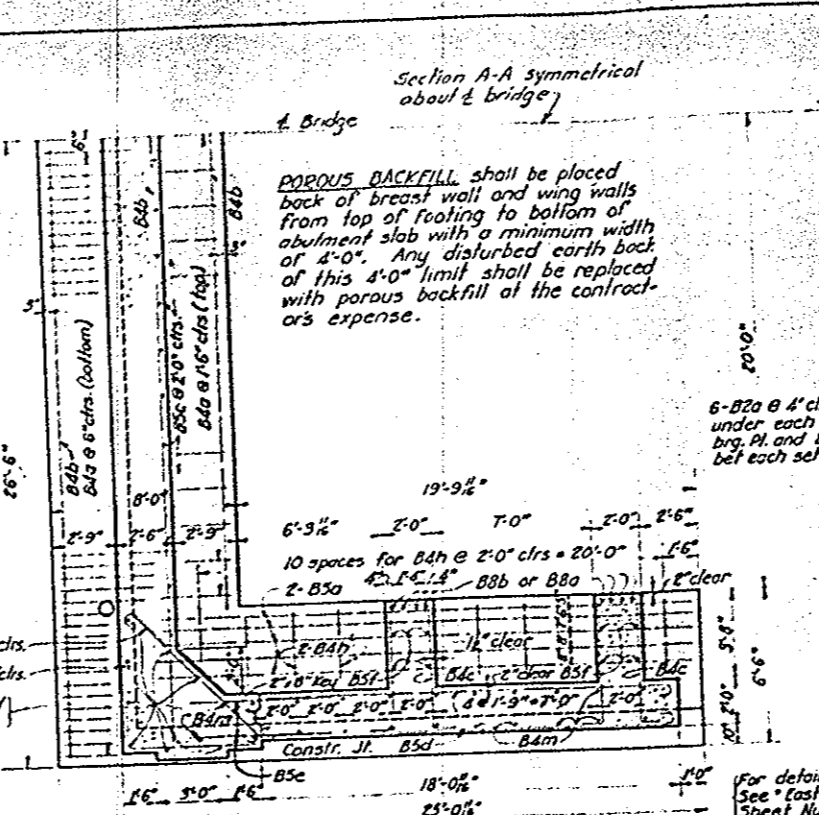 Section A-A symmetrical
about ℄ bridge
℄ Bridge
POROUS BACKFILL shall be placed
back of breast wall and wing walls
from top of footing to bottom of
abutment slab with a minimum width
of 4'-0". Any disturbed earth back
of this 4'-0" limit shall be replaced
with porous backfill at the contract-
or's expense.
6"
B4b
B4b
3"
B4b
B4a @ 6" ctrs. (bottom)
B5c @ 2'-0" ctrs.
B4a @ 1'-6" ctrs (top)
26'-6"
20'-0"
6-B2a @ 4" c
under each
brg. Pl. and
bet each set
8'-0"
2'-9" 2'-6" 2'-9"
19'-9 11/16"
6'-3 11/16" 2'-0" 7'-0" 2'-0" 2'-6"
10 spaces for B4h @ 2'-0" ctrs = 20'-0" 1'-6"
2-B5a B8b or B8a 2" clear
2-B4h 1½" clear
ctrs.
ctrs.
key B5f B4c 2" clear B5f B4c
B4m
2'-0" 2'-0" 2'-0" 2'-0" 4 @ 1'-9" = 7'-0" 2'-0"
Constr. Jt. B5d B4m
B5e
3'-8"
2'-0"
10"
6'-6"
1'-6" 3'-0" 1'-6" 18'-0 11/16" 1'-0"
25'-0 11/16"
For detail
See "East
Sheet Nu